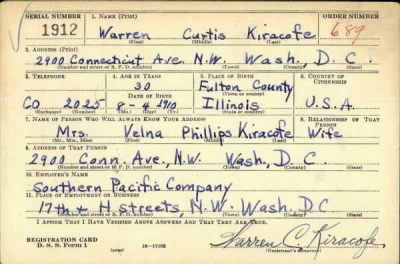 SERIAL NUMBER 1. NAME (Print) ORDER NUMBER
1912 Warren Curtis Kiracofe 689
(First) (Middle) (Last)
2. ADDRESS (Print)
2900 Connecticut Ave. N.W. Wash., D.C.
(Number and street or R. F. D. number) (Town) (County) (State)
3. TELEPHONE 4. AGE IN YEARS 5. PLACE OF BIRTH 6. COUNTRY OF CITIZENSHIP
30 Fulton County
DATE OF BIRTH (Town or county)
CO 2025 8-4-1910 Illinois U.S.A.
(Exchange) (Number) (Mo.) (Day) (Yr.) (State or country)
7. NAME OF PERSON WHO WILL ALWAYS KNOW YOUR ADDRESS 8. RELATIONSHIP OF THAT PERSON
Mrs. Velna Phillips Kiracofe Wife
(Mr., Mrs., Miss) (First) (Middle) (Last)
9. ADDRESS OF THAT PERSON
2900 Conn. Ave., N.W. Wash., D.C.
(Number and street or R. F. D. number) (Town) (County) (State)
10. EMPLOYER'S NAME
Southern Pacific Company
11. PLACE OF EMPLOYMENT OR BUSINESS
17th & H streets, N.W. Wash. D.C
(Number and street or R. F. D. number) (Town) (County) (State)
I AFFIRM THAT I HAVE VERIFIED ABOVE ANSWERS AND THAT THEY ARE TRUE.
REGISTRATION CARD
D. S. S. Form 1 16-17105 Warren C. Kiracofe
(Registrant's signature)